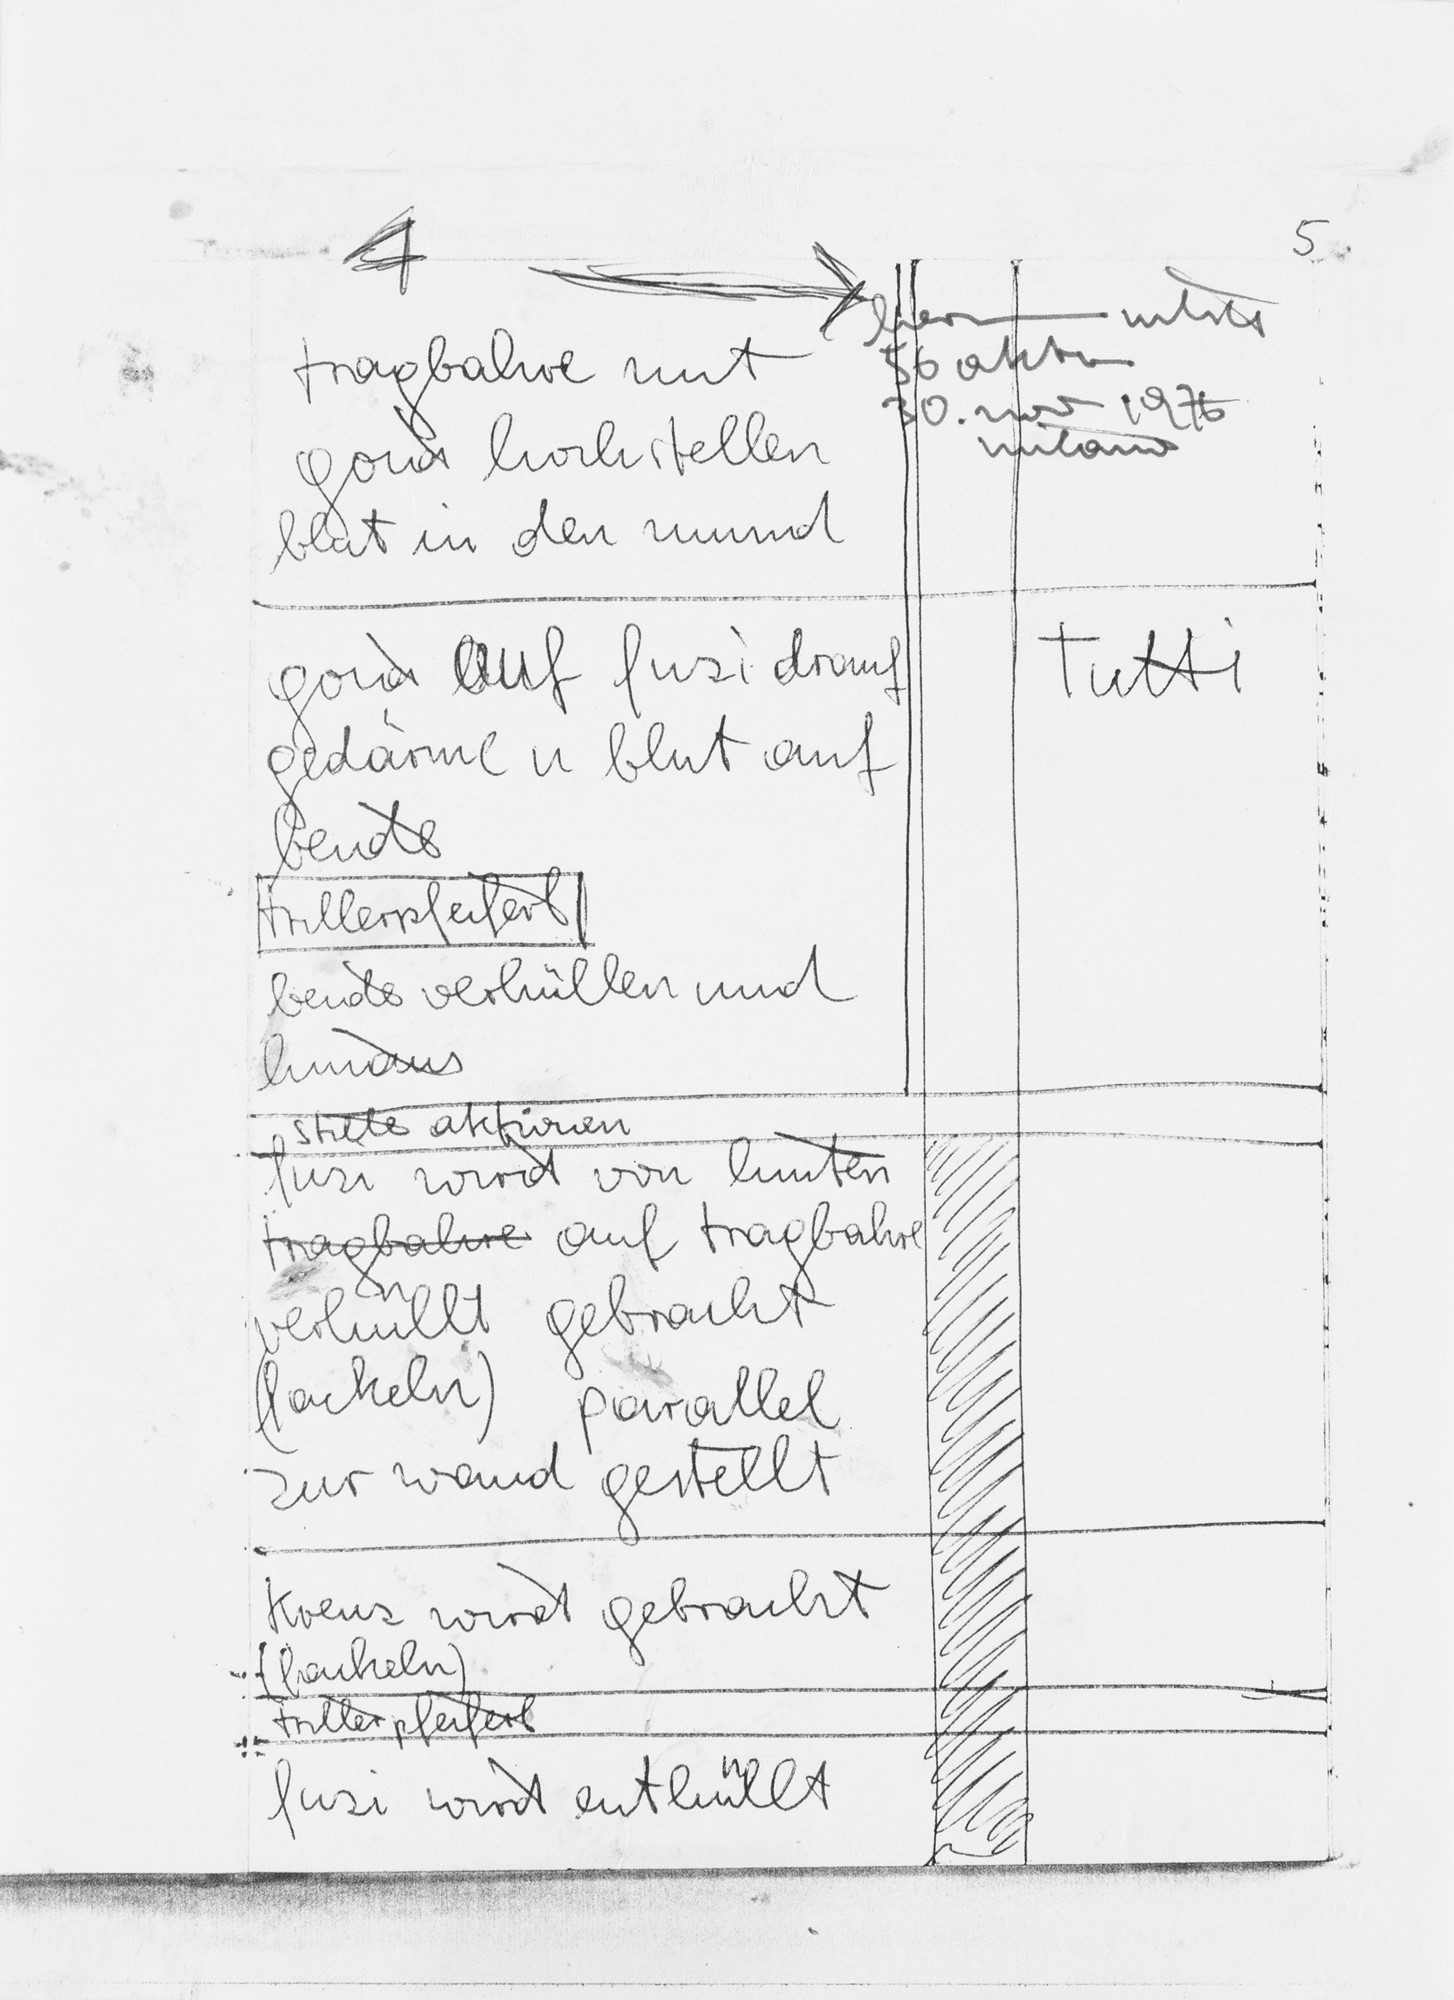 4
5
hermann nitsch
56 aktion
30. nov 1976
milano
tragbahre mit
hochstellen
blut in den mund
auf fuzi drauf
Tutti
gedärme u blut auf
beide
trillerpfeiferl
beide verhüllen und
hinaus
stille aktionen
fuzi wird von hinten
tragbahre auf tragbahre
verhüllt gebracht
(fackeln) parallel
zur wand gestellt
kreuz wird gebracht
(fackeln)
trillerpfeiferl
fuzi wird enthüllt